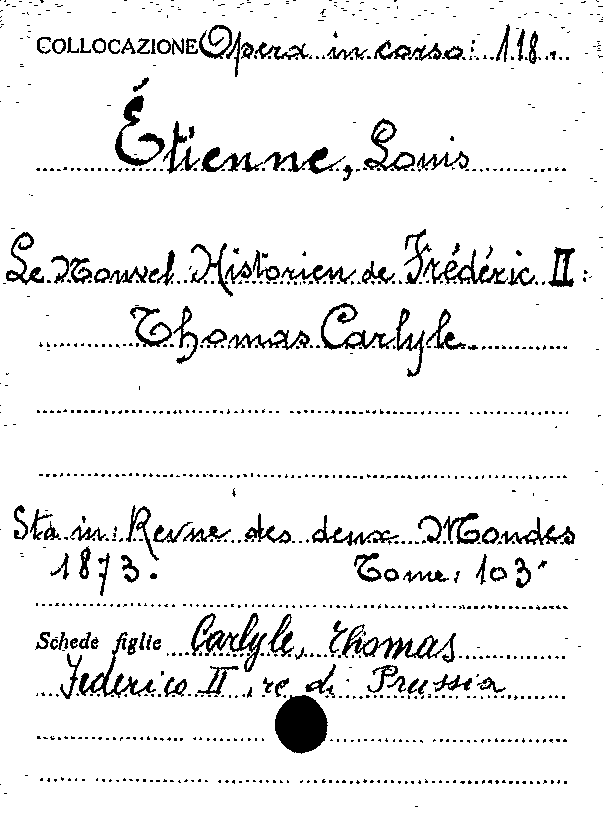 COLLOCAZIONE Opera in corso: 118.
Étienne, Louis
Le Nouvel Historien de Frédéric II:
Thomas Carlyle.
Sta in: Revue des deux Mondes
1873. Tome: 103°
Schede figlie Carlyle, Thomas
Federico II, re di Prussia